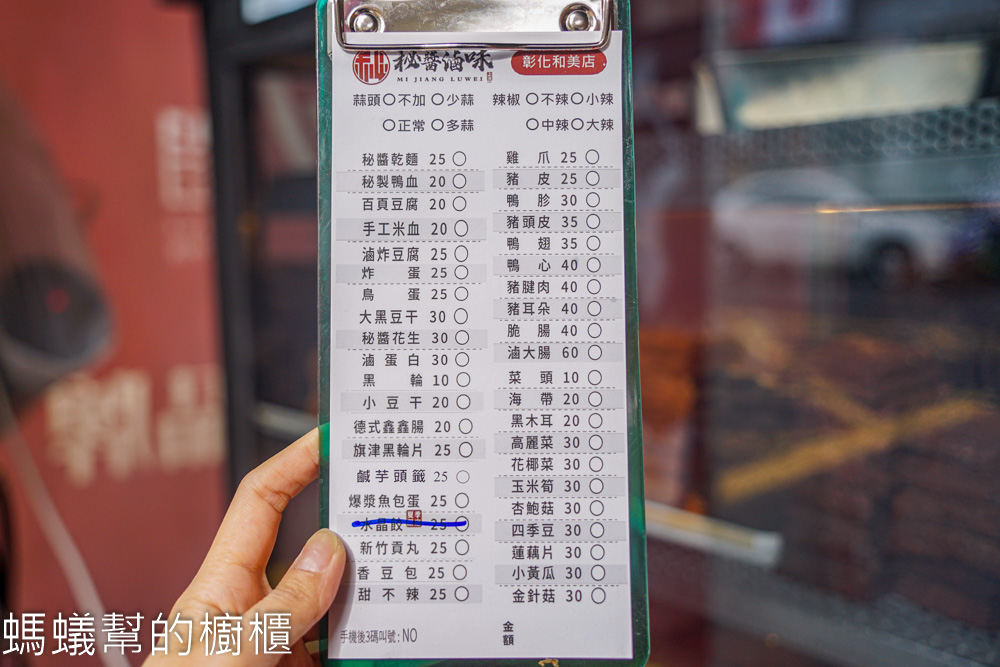 秘醬滷味
MI JIANG LUWEI
彰化和美店
蒜頭○不加 ○少蒜
○正常 ○多蒜
辣椒 ○不辣○小辣
○中辣○大辣
秘醬乾麵 25 ○
秘製鴨血 20 ○
百頁豆腐 20 ○
手工米血 20 ○
滷炸豆腐 25 ○
炸蛋 25 ○
鳥蛋 25 ○
大黑豆干 30 ○
秘醬花生 30 ○
滷蛋白 30 ○
黑輪 10 ○
小豆干 20 ○
德式鑫鑫腸 20 ○
旗津黑輪片 25 ○
鹹芋頭籤 25 ○
爆漿魚包蛋 25 ○
水晶餃 25 ○
新竹貢丸 25 ○
香豆包 25 ○
甜不辣 25 ○
雞爪 25 ○
豬皮 25 ○
鴨胗 30 ○
豬頭皮 35 ○
鴨翅 35 ○
鴨心 40 ○
豬腱肉 40 ○
豬耳朵 40 ○
脆腸 40 ○
滷大腸 60 ○
菜頭 10 ○
海帶 20 ○
黑木耳 20 ○
高麗菜 30 ○
花椰菜 30 ○
玉米筍 30 ○
杏鮑菇 30 ○
四季豆 30 ○
蓮藕片 30 ○
小黃瓜 30 ○
金針菇 30 ○
手機後3碼叫號:NO
金額
螞蟻幫的櫥櫃